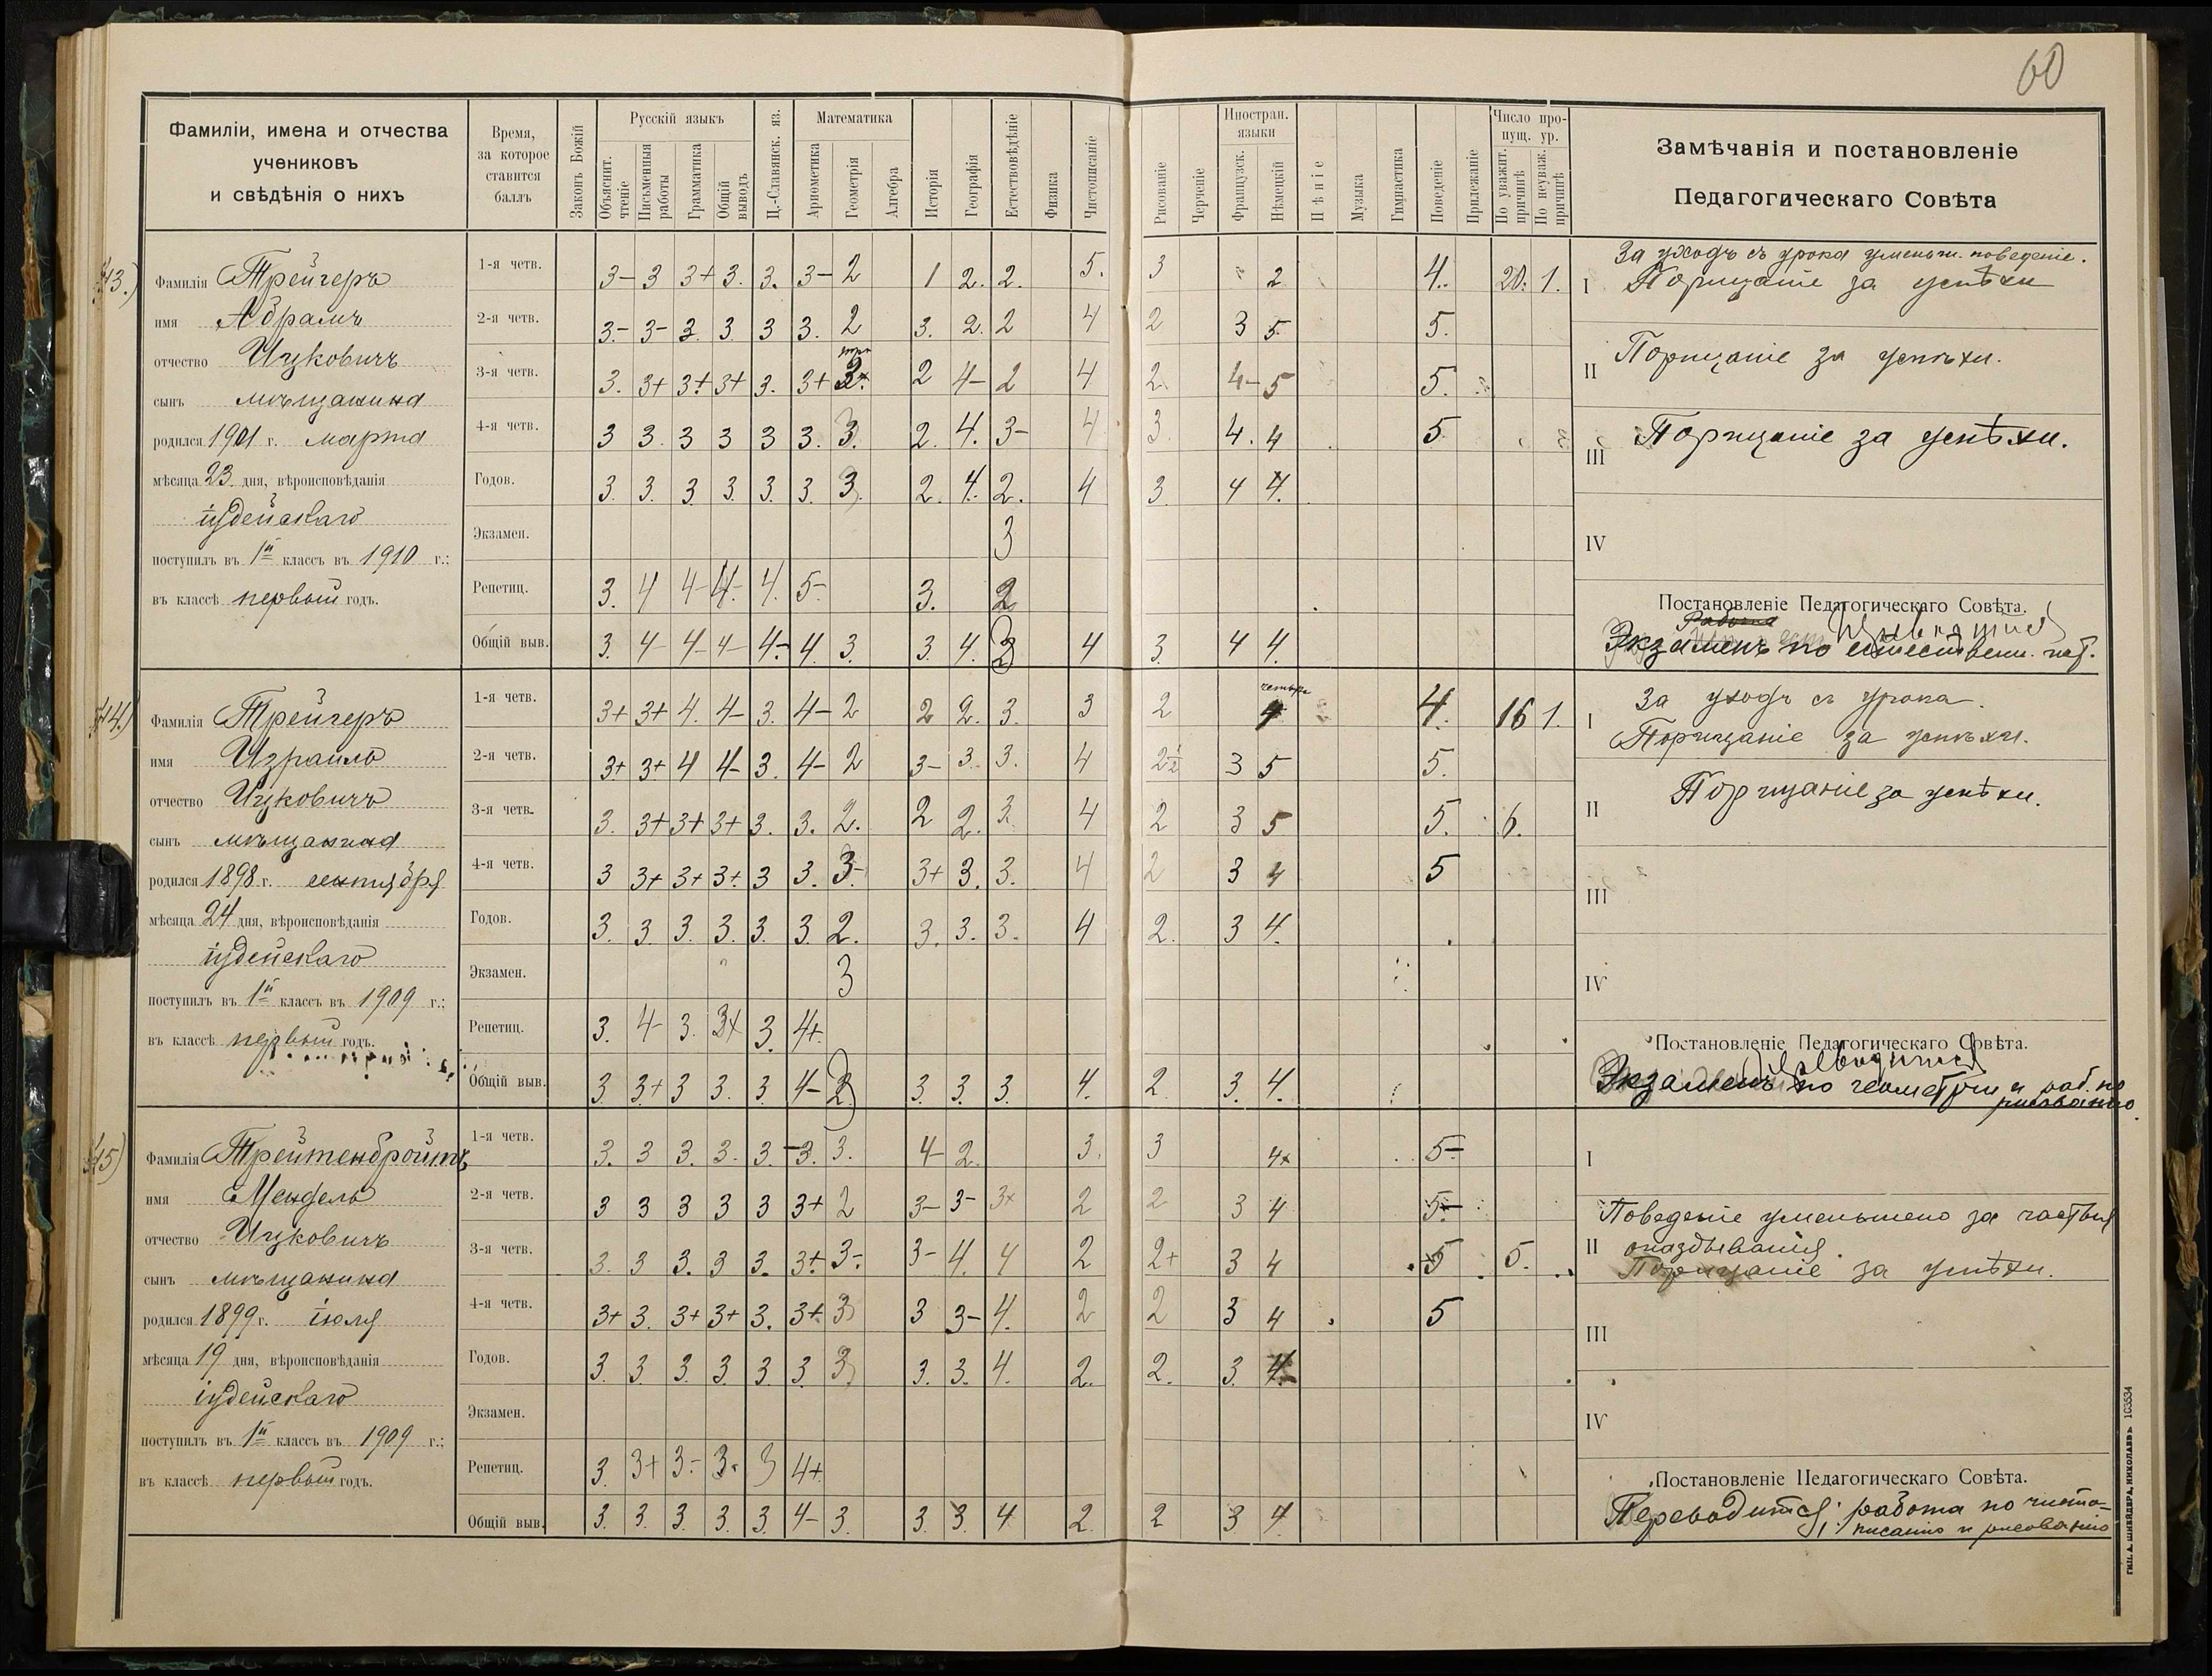 60
Фамиліи, имена и отчества
учениковъ
и свѣдѣнія о нихъ
Время,
за которое
ставится
баллъ
Законъ Божій
Русскій языкъ
Объяснит. чтеніе
Письменныя работы
Грамматика
Общій выводъ
Ц.-Славянск. яз.
Математика
Ариѳметика
Геометрія
Алгебра
Исторія
Географія
Естествовѣдѣніе
Физика
Чистописаніе
Рисованіе
Черченіе
Иностран. языки
Французск.
Нѣмецкій
Пѣніе
Музыка
Гимнастика
Поведеніе
Прилежаніе
Число пропущ. ур.
По уважит. причинѣ
По неуваж. причинѣ
Замѣчанія и постановленіе
Педагогическаго Совѣта
Фамилія Трейгеръ
имя Абрамъ
отчество Ицковичъ
сынъ мѣщанина
родился 1901 г. марта
мѣсяца 23 дня, вѣроисповѣданія
іудейскаго
поступилъ въ 1й классъ въ 1910 г.;
въ классѣ первый годъ.
1-я четв. 3- 3 3+ 3. 3. 3- 2 1 2. 2. 5. 3 2 4. 20. 1.
2-я четв. 3- 3- 3. 3 3 3. 2 3. 2. 2 4 2 3 5. 5.
3-я четв. 3. 3+ 3+ 3+ 3. 3+ 2 4- 2 4 2 4- 5 5.
4-я четв. 3 3. 3 3 3 3. 3. 2. 4. 3- 4 3 4. 4 5.
Годов. 3. 3. 3 3. 3. 3. 3. 2. 4. 2. 4 3. 4 4.
Экзамен. 3
Репетиц. 3. 4 4- 4- 4. 5- 3. 2
Общій выв. 3. 4 4- 4- 4- 4. 3. 3. 4. 3 4 3. 4 4.
I За уходъ съ урока уменьш. поведеніе.
Порицаніе за успѣхи
II Порицаніе за успѣхи.
III Порицаніе за успѣхи.
IV
Постановленіе Педагогическаго Совѣта.
Работа
Экзаменъ по естествен.
Фамилія Трейгеръ
имя Израиль
отчество Ицковичъ
сынъ мѣщанина
родился 1898 г. сентября
мѣсяца 24 дня, вѣроисповѣданія
іудейскаго
поступилъ въ 1й классъ въ 1909 г.;
въ классѣ первый годъ.
1-я четв. 3+ 3+ 4. 4- 3. 4- 2 2 2. 3. 3 2 4 4. 16 1.
2-я четв. 3+ 3+ 4 4- 3. 4- 2 3- 3. 3. 4 2½ 3 5 5.
3-я четв. 3. 3+ 3+ 3+ 3. 3. 2. 2 2. 3 4 2 3 5 5. 6.
4-я четв. 3 3+ 3+ 3+. 3 3. 3- 3+ 3. 3. 4 2 3 4 5
Годов. 3. 3. 3. 3. 3. 3. 2. 3. 3. 3. 4 2. 3 4.
Экзамен. 3
Репетиц. 3. 4- 3. 3+ 3. 4+
Общій выв. 3 3+ 3 3. 3. 4- 3 3. 3. 3. 4. 2. 3. 4.
I За уходъ съ урока.
Порицаніе за успѣхи.
II Порицаніе за успѣхи.
III
IV
Постановленіе Педагогическаго Совѣта.
Переводится
Экзаменъ по геометріи и раб. по
рисованію.
Фамилія Трейтенбройтъ
имя Мендель
отчество Ицковичъ
сынъ мѣщанина
родился 1899 г. іюля
мѣсяца 19 дня, вѣроисповѣданія
іудейскаго
поступилъ въ 1й классъ въ 1909 г.;
въ классѣ первый годъ.
1-я четв. 3. 3 3. 3. 3. 3. 3. 4 2. 3. 3 4+ 5-
2-я четв. 3 3 3 3 3 3+ 2 3- 3- 3+ 2 2 3 4 5-
3-я четв. 3. 3 3. 3 3. 3+ 3- 3- 4. 4 2 2+ 3 4 5 5.
4-я четв. 3+ 3. 3+ 3+ 3. 3+ 3 3 3- 4. 2 2 3 4 5
Годов. 3. 3. 3. 3. 3. 3 3 3. 3. 4. 2. 2. 3. 4.
Экзамен.
Репетиц. 3 3+ 3- 3- 3 4+
Общій выв. 3. 3. 3. 3. 3. 4- 3. 3. 3. 4 2. 2 3. 4
I
Поведеніе уменьшено за частыя
II опаздыванія.
Порицаніе за успѣхи.
III
IV
Постановленіе Педагогическаго Совѣта.
Переводится; работа по чисто-
писанію и рисованію
ТИП. А. ШНЕЙДЕРА, НИКОЛАЕВЪ 103534